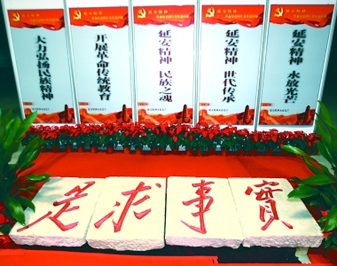 大力弘扬民族精神
开展革命传统教育
延安精神 民族之魂
延安精神 世代传承
延安精神 永放光芒
實事求是